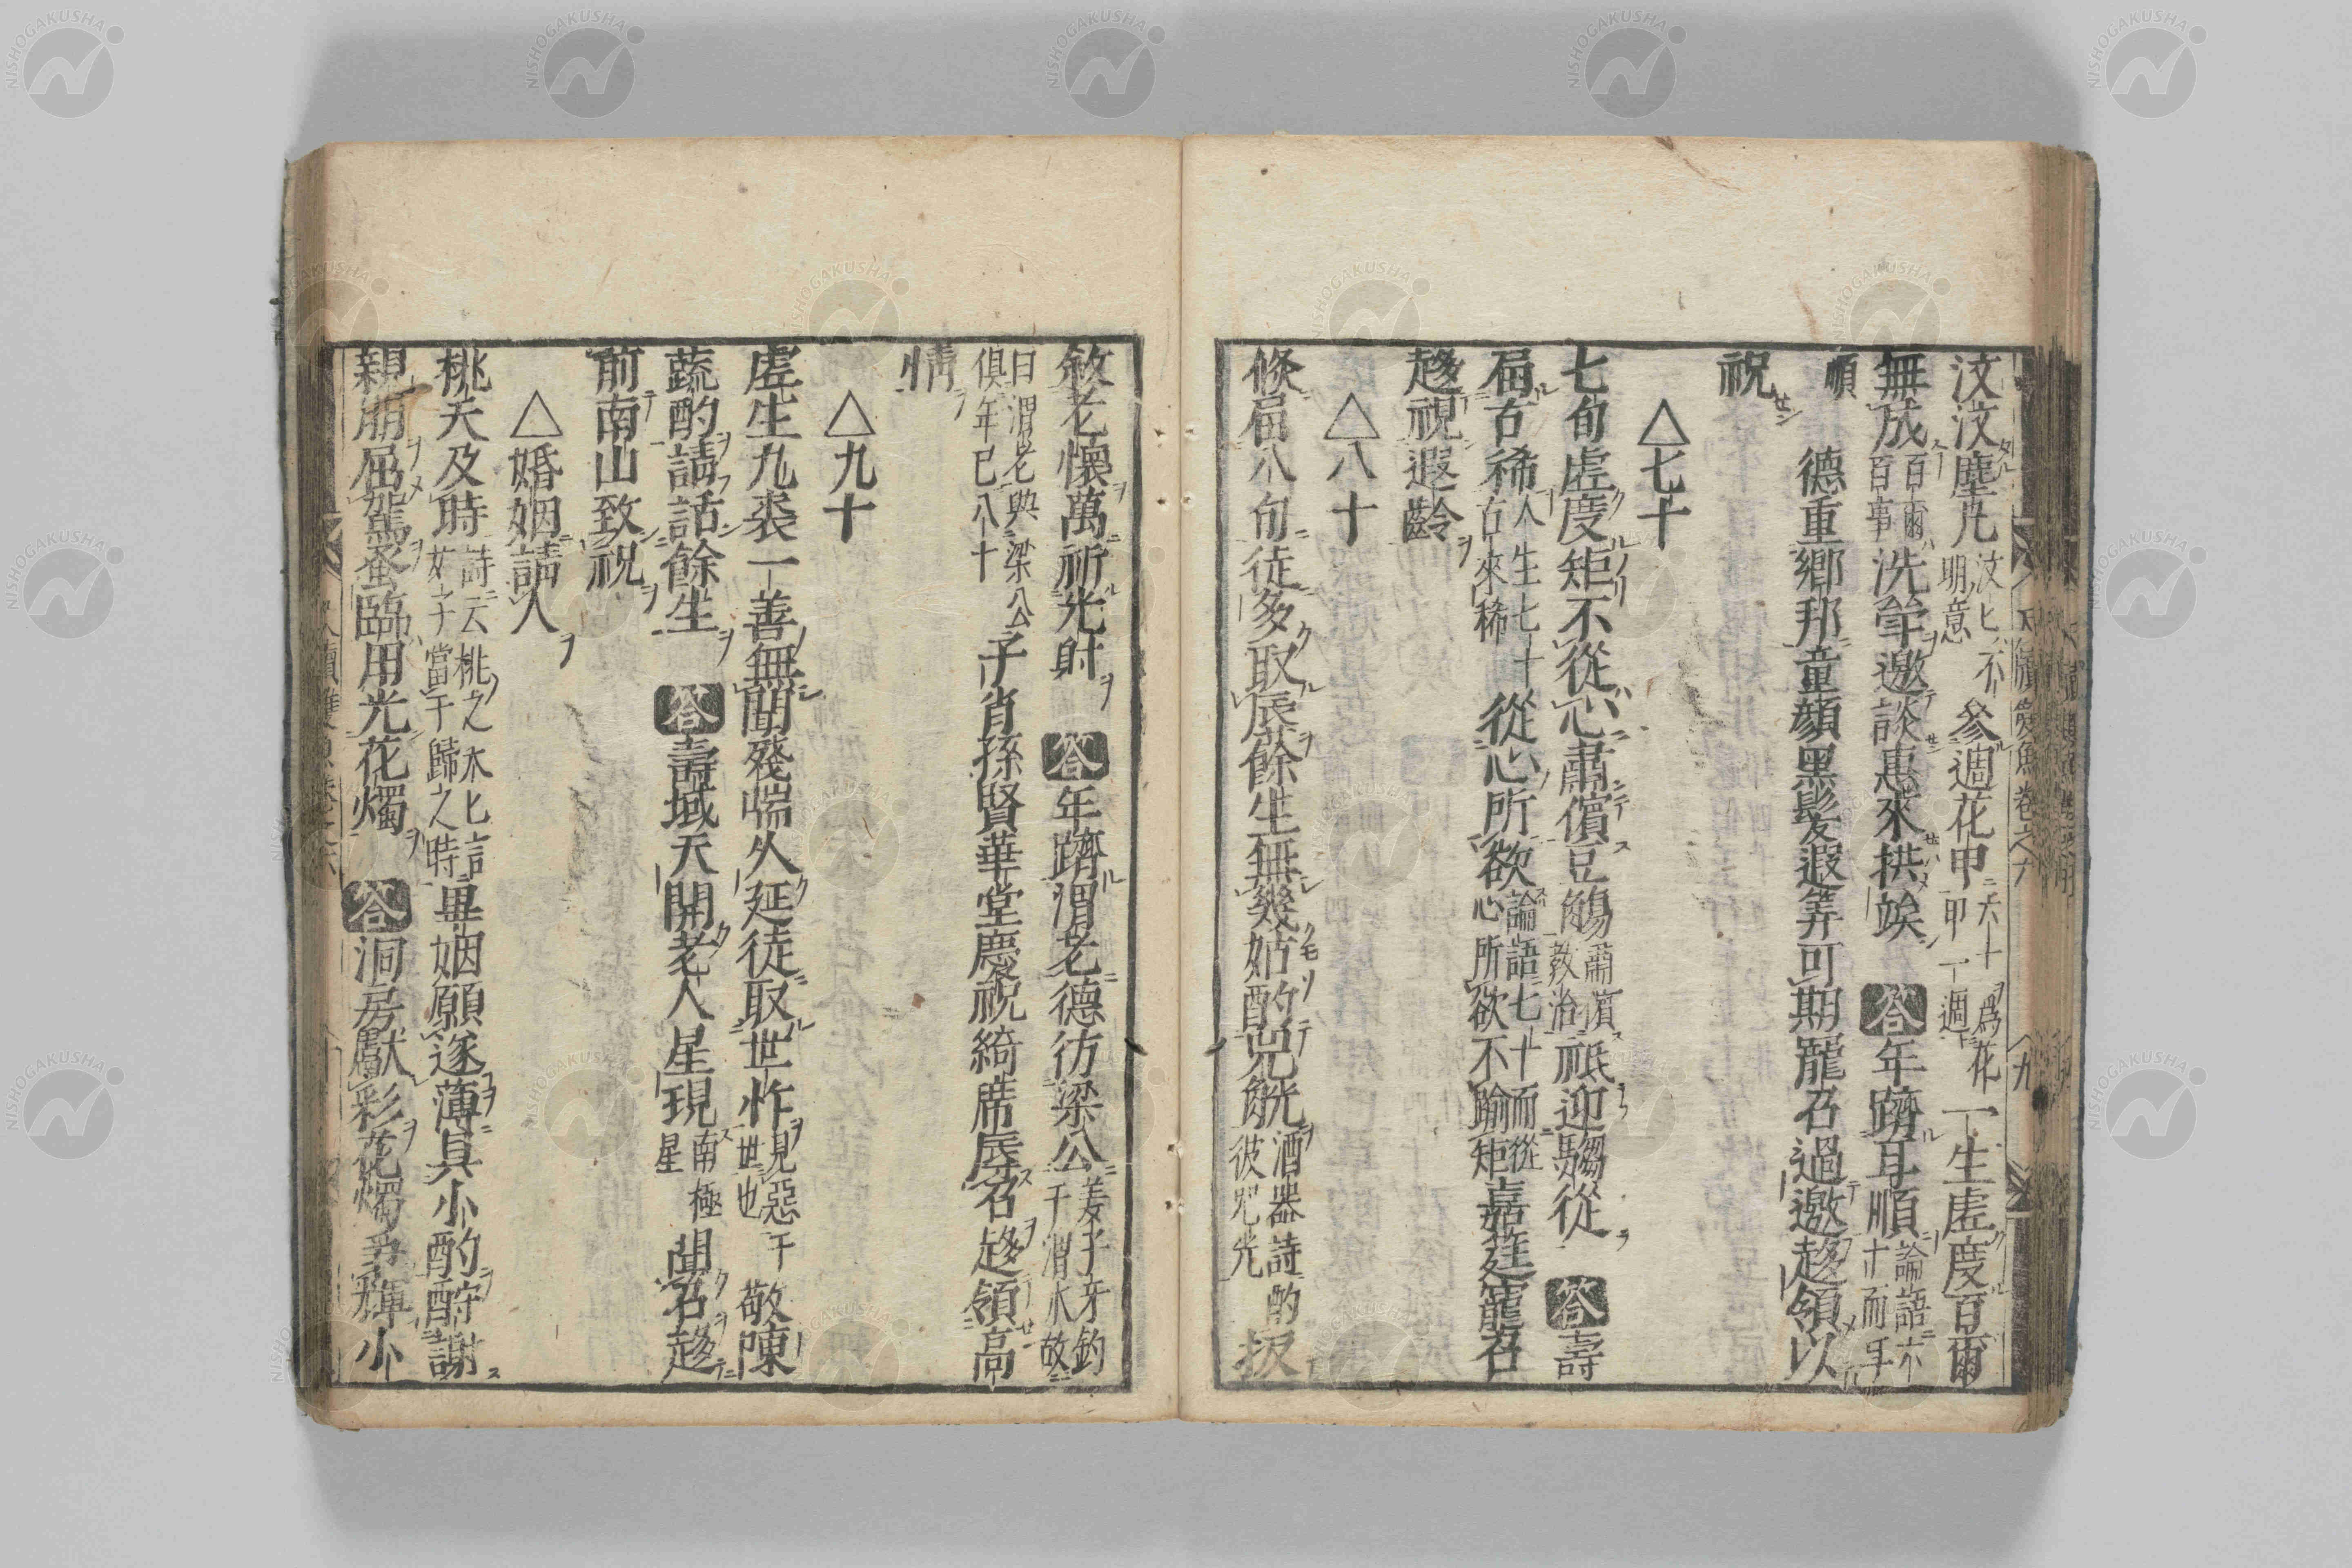 汶汶塵凡汶匕不明意參週花甲六十爲花甲一週一生虛度百爾
無成百爾百事洗斝邀談惠來拱竢答年躋耳順論語六十而耳
順德重鄉邦童顔黑髪遐筭可期寵召過邀趨領以
祝
△七十
七旬虛度矩不從心肅儐豆觴祗迎騶從答壽
屆古稀人生七十古來稀從心所欲論語七十而從心所欲不踰矩嘉筵寵召
趨祝遐齡
△八十
倐屆八旬徒多取辰餘生無幾姑酌兕觥酒器詩酌彼兕光扳
尺牘雙魚卷之六 九
敘老懷萬祈光貯答年躋渭老德彷梁公姜子牙釣于渭水故
曰渭老與梁公俱年已八十子肖孫賢華堂慶祝綺席辱召趨領高
情
△九十
虛生九袠一善無聞殘喘久延徒取世怍見惡于世也敬陳
蔬酌請話餘生答壽域天開老人星現南極星聞召趨
前南山致祝
△婚姻請人
桃夭及時詩云桃之夭匕言女子當于歸之時畢姻願遂薄具小酌酧謝
親朋屈駕蚤臨用光花燭答洞房獻彩花燭爭輝小
NISHOGAKUSHA